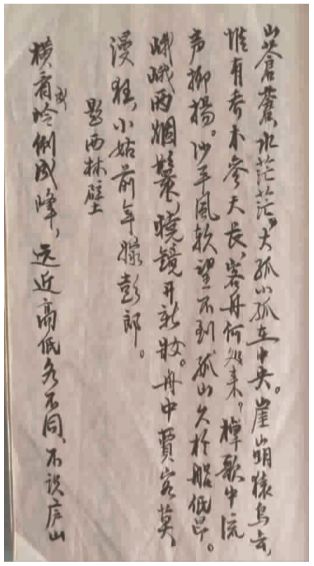 山蒼蒼,水茫茫,大孤小孤在中央。崖崩猿鸟去,
惟有乔木参天长。客舟何处来,棹歌中流
声抑扬。沙平风软望不到,孤山久於船低昂。
峨峨两烟鬟,晓镜开新妝。舟中賈客莫
漫狂,小姑前年嫁彭郎。
题西林壁
横看成岭侧成峰,远近高低各不同,不识庐山